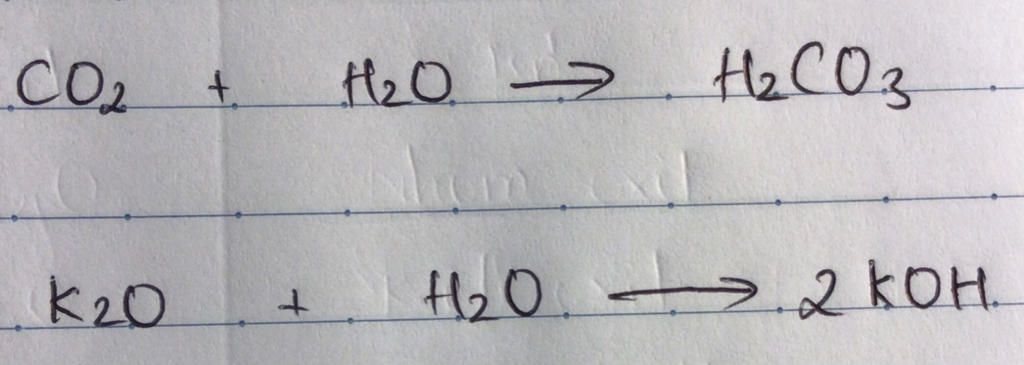 CO2 + H2O → H2CO3
K2O + H2O → 2 KOH